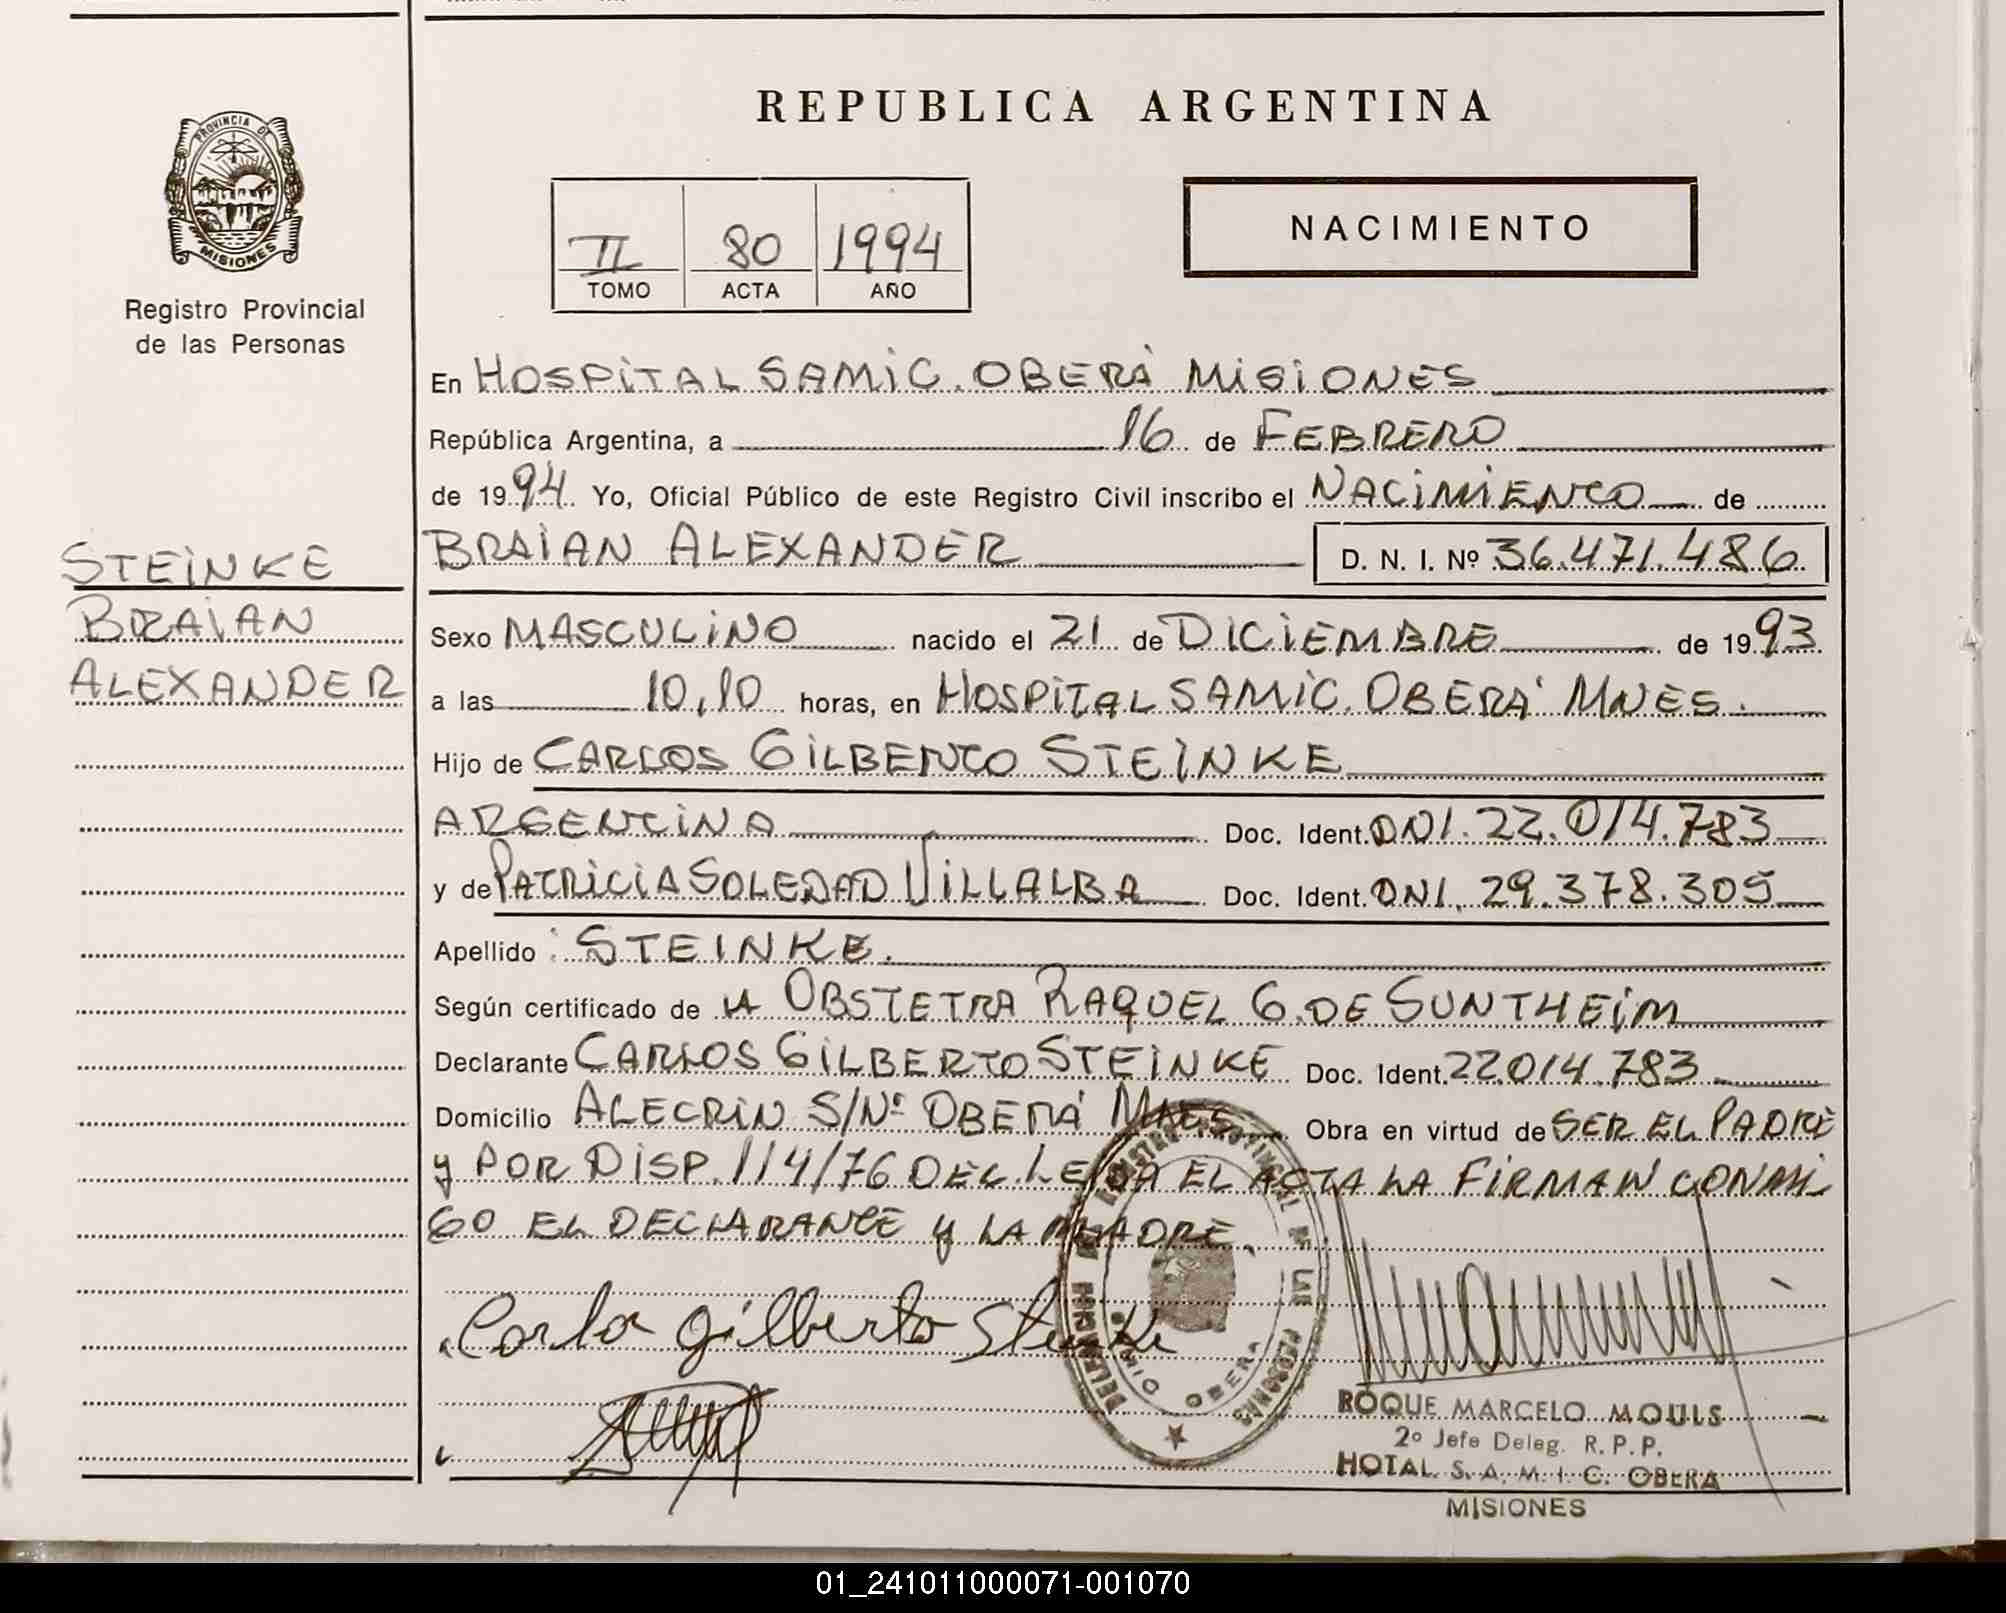 REPUBLICA ARGENTINA
PROVINCIA DE
MISIONES
Registro Provincial
de las Personas
II 80 1994
TOMO ACTA AÑO
NACIMIENTO
En HOSPITAL SAMIC. OBERÁ MISIONES
República Argentina, a 16 de FEBRERO
de 1994 Yo, Oficial Público de este Registro Civil inscribo el NACIMIENTO de
STEINKE
BRAIAN
ALEXANDER
BRAIAN ALEXANDER D. N. I. Nº 36.471.486
Sexo MASCULINO nacido el 21 de DICIEMBRE de 1993
a las 10,10 horas, en HOSPITAL SAMIC. OBERÁ MNES.
Hijo de CARLOS GILBERTO STEINKE
ARGENTINA Doc. Ident. DNI. 22.014.783
y de PATRICIA SOLEDAD VILLALBA Doc. Ident. DNI. 29.378.305
Apellido : STEINKE.
Según certificado de LA OBSTETRA RAQUEL G. DE SUNTHEIM
Declarante CARLOS GILBERTO STEINKE Doc. Ident. 22014.783
Domicilio ALECRIN S/Nº OBERÁ MNES Obra en virtud de SER EL PADRE
y POR DISP. 114/76 DEC. LEIDA EL ACTA LA FIRMAN CONMI
GO EL DECLARANTE y LA MADRE.
Carlo Gilberto Steinke
REGISTRO PROVINCIAL DE LAS PERSONAS
OBERA
ROQUE MARCELO MOULS
2º Jefe Deleg. R. P. P.
HOTAL. S. A. M. I. C. OBERA
MISIONES
01_241011000071-001070